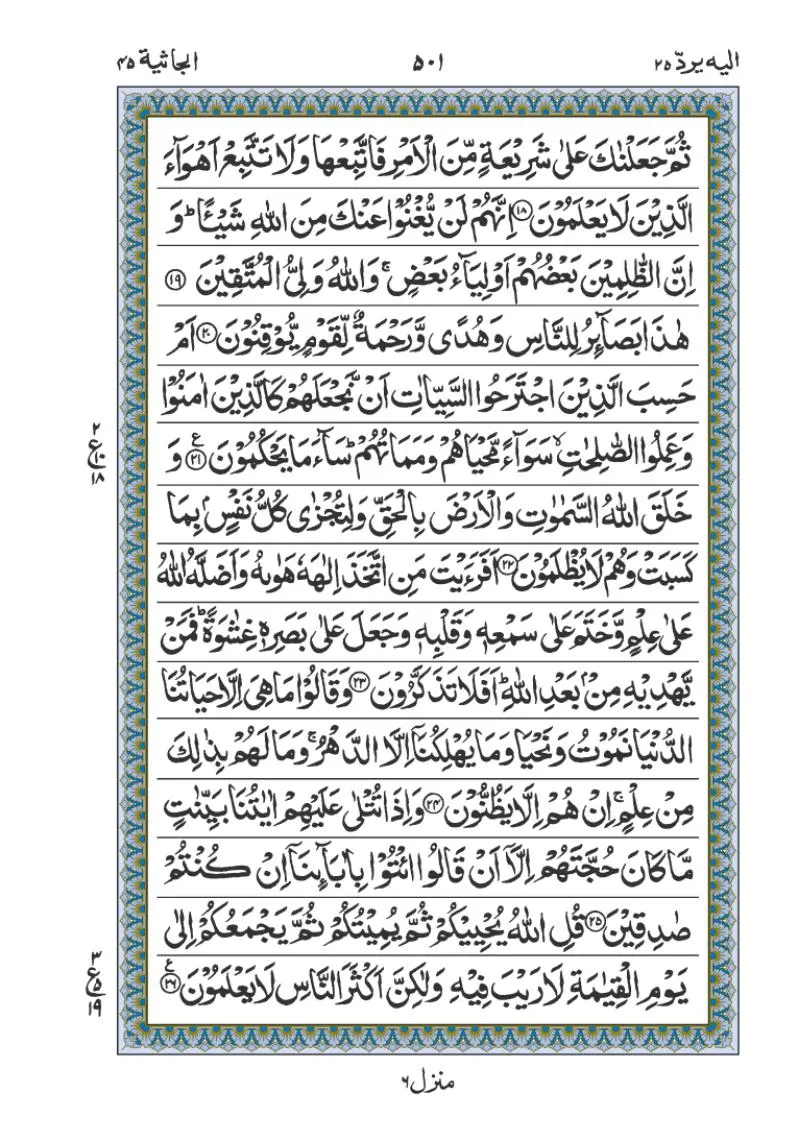 اليه يردّ ٢٥
٥٠١
الجاثية ٤٥
ثُمَّ جَعَلْنٰكَ عَلٰى شَرِيْعَةٍ مِّنَ الْاَمْرِ فَاتَّبِعْهَا وَلَا تَتَّبِعْ اَهْوَآءَ
الَّذِيْنَ لَا يَعْلَمُوْنَ ۝۱۸ اِنَّهُمْ لَنْ يُّغْنُوْا عَنْكَ مِنَ اللّٰهِ شَيْـًٔا ؕ وَ
اِنَّ الظّٰلِمِيْنَ بَعْضُهُمْ اَوْلِيَآءُ بَعْضٍ ۚ وَاللّٰهُ وَلِىُّ الْمُتَّقِيْنَ ۝۱۹
هٰذَا بَصَآئِرُ لِلنَّاسِ وَهُدًى وَّرَحْمَةٌ لِّقَوْمٍ يُّوْقِنُوْنَ ۝۲۰ اَمْ
حَسِبَ الَّذِيْنَ اجْتَرَحُوا السَّيِّاٰتِ اَنْ نَّجْعَلَهُمْ كَالَّذِيْنَ اٰمَنُوْا
وَعَمِلُوا الصّٰلِحٰتِ ۙ سَوَآءً مَّحْيَاهُمْ وَمَمَاتُهُمْ ؕ سَآءَ مَا يَحْكُمُوْنَ ۝۲۱ ع وَ
خَلَقَ اللّٰهُ السَّمٰوٰتِ وَالْاَرْضَ بِالْحَقِّ وَلِتُجْزٰى كُلُّ نَفْسٍۭ بِمَا
كَسَبَتْ وَهُمْ لَا يُظْلَمُوْنَ ۝۲۲ اَفَرَءَيْتَ مَنِ اتَّخَذَ اِلٰهَهٗ هَوٰىهُ وَاَضَلَّهُ اللّٰهُ
عَلٰى عِلْمٍ وَّخَتَمَ عَلٰى سَمْعِهٖ وَقَلْبِهٖ وَجَعَلَ عَلٰى بَصَرِهٖ غِشٰوَةً ؕ فَمَنْ
يَّهْدِيْهِ مِنْۢ بَعْدِ اللّٰهِ ؕ اَفَلَا تَذَكَّرُوْنَ ۝۲۳ وَقَالُوْا مَا هِىَ اِلَّا حَيَاتُنَا
الدُّنْيَا نَمُوْتُ وَنَحْيَا وَمَا يُهْلِكُنَاۤ اِلَّا الدَّهْرُ ۚ وَمَا لَهُمْ بِذٰلِكَ
مِنْ عِلْمٍ ۚ اِنْ هُمْ اِلَّا يَظُنُّوْنَ ۝۲۴ وَاِذَا تُتْلٰى عَلَيْهِمْ اٰيٰتُنَا بَيِّنٰتٍ
مَّا كَانَ حُجَّتَهُمْ اِلَّاۤ اَنْ قَالُوا ائْتُوْا بِاٰبَآئِنَاۤ اِنْ كُنْتُمْ
صٰدِقِيْنَ ۝۲۵ قُلِ اللّٰهُ يُحْيِيْكُمْ ثُمَّ يُمِيْتُكُمْ ثُمَّ يَجْمَعُكُمْ اِلٰى
يَوْمِ الْقِيٰمَةِ لَا رَيْبَ فِيْهِ وَلٰكِنَّ اَكْثَرَ النَّاسِ لَا يَعْلَمُوْنَ ۝۲۶ ع
٢
ع ١٠
١٨
٣
ع ٥
١٩
منزل ٦